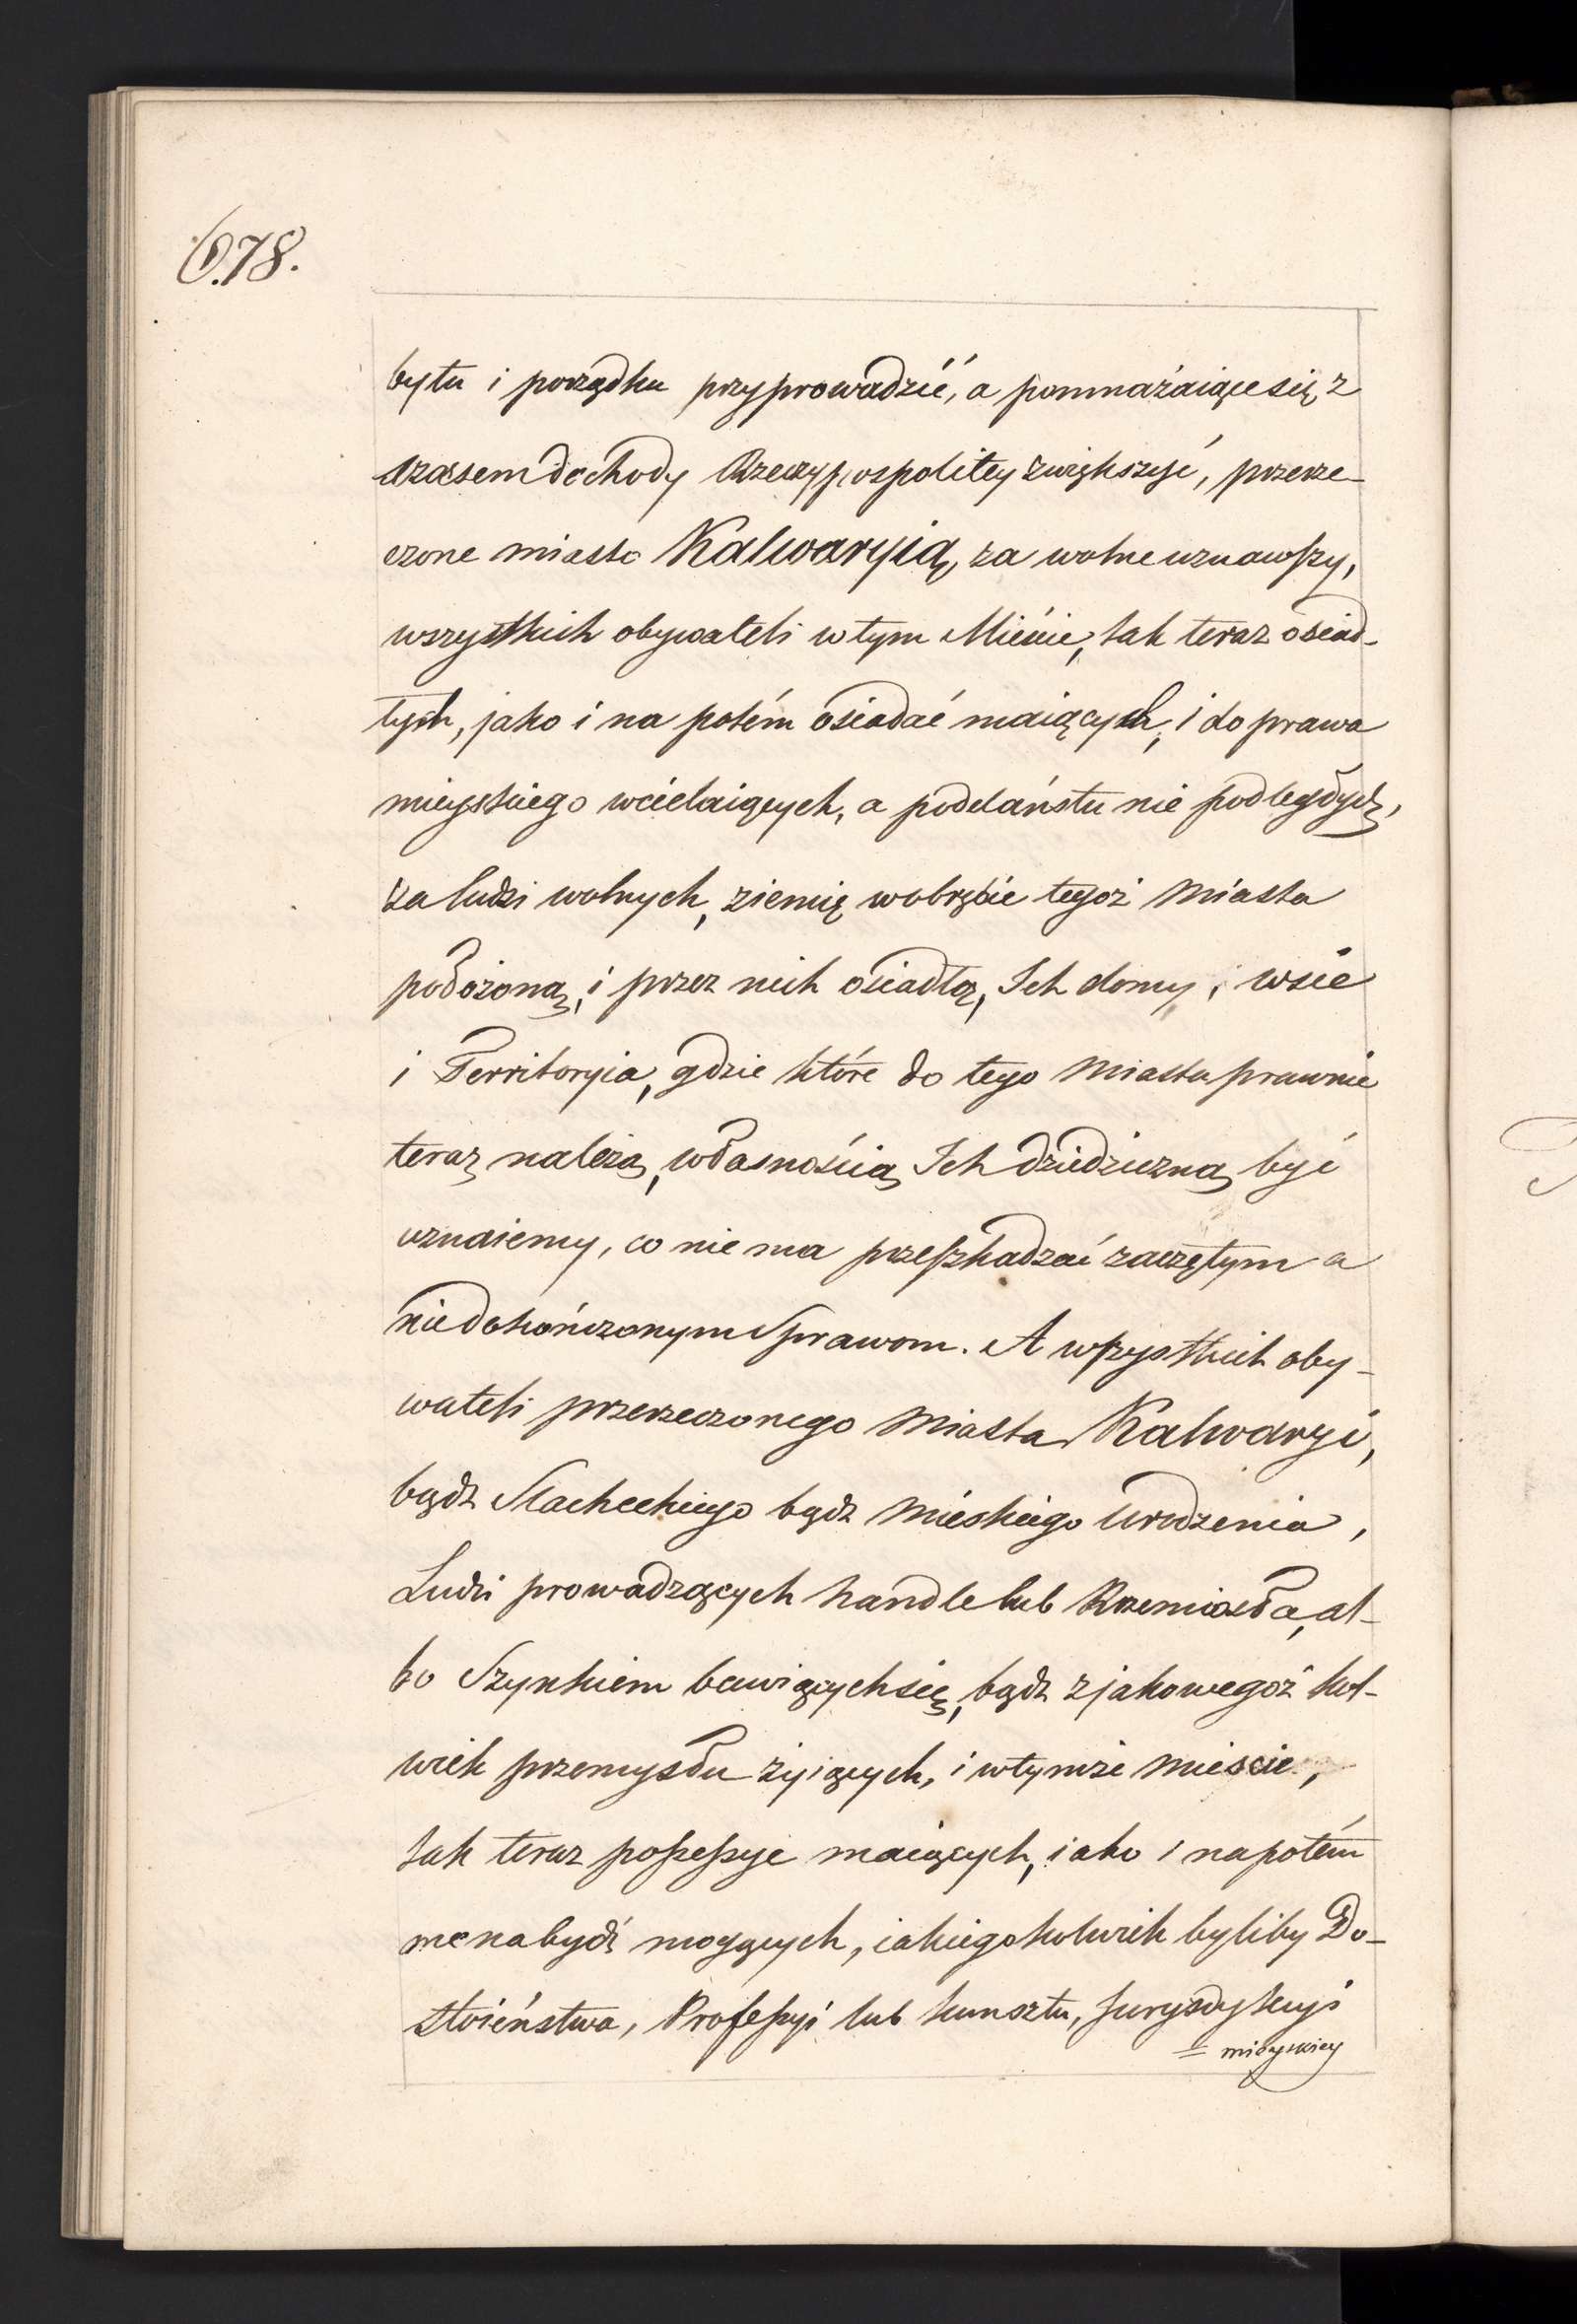 678.
bytu i porządku przyprowadzić, a pomnażaiące się z
czasem dochody Rzeczypospolitey zwiększyć, przerze-
czone miasto Kalwaryią, za wolne uznawszy,
wszystkich obywateli w tym Mieście, tak teraz osiad-
łych, jako i na potém osiadać maiących, i do prawa
mieyskiego wcielaiących, a poddaństu nie podległych,
za ludzi wolnych, ziemię w obrębie tegoż Miasta
położoną, i przez nich osiadłą, Ich domy, i wsie
i Territoryia, gdzie które do tego Miasta prawnie
teraz należą, własnością Ich dziedziczną być
uznaiemy, co nie ma przeszkadzać zaczętym a
niedokończonym Sprawom. A wszystkich oby-
wateli przerzeczonego Miasta Kalwaryi,
bądź Slacheckiego bądź Mieskiego Urodzenia,
Ludzi prowadzących handle lub Rzemiosła, al-
bo Szynkiem bawiących się, bądź z jakowegoż kol-
wiek przemysłu żyiących, i w tymże Mieście,
tak teraz possessyje maiących, iako i na potém
one nabydź mogących, iakiegokolwiek byliby Do-
stoieństwa, Professyi lub kunsztu, Jurysdykcyi
= mieyskiey